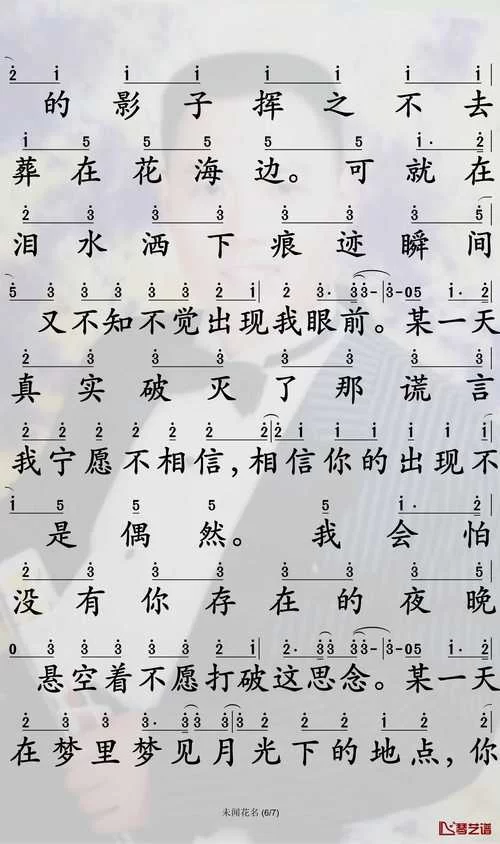 2 i i i i i i i
的影子挥之不去
i 5 5 5 5 5 i· 2
葬在花海边。可就在
2 3 3 3 3 3 3 5
泪水洒下痕迹瞬间
5 3 3 3 3 3 2 i | i 2 3· 3 3- | 3-05 i· 2
又不知不觉出现我眼前。某一天
2 3 3 3 3 3 3 5
真实破灭了那谎言
2 2 2 2 2 2 2 2 i i i i i i
我宁愿不相信,相信你的出现不
i 5 5 5 5 i· 2
是偶然。我会怕
2 3 3 3 3 3 3 5
没有你存在的夜晚
0 3 3 3 3 3 2 i | 2· 3 3 3- | 3-05 i· 2
悬空着不愿打破这思念。某一天
2 3 3 3· 3 3 2 2 2 i 2 2
在梦里梦见月光下的地点,你
未闻花名 (6/7)
琴艺谱